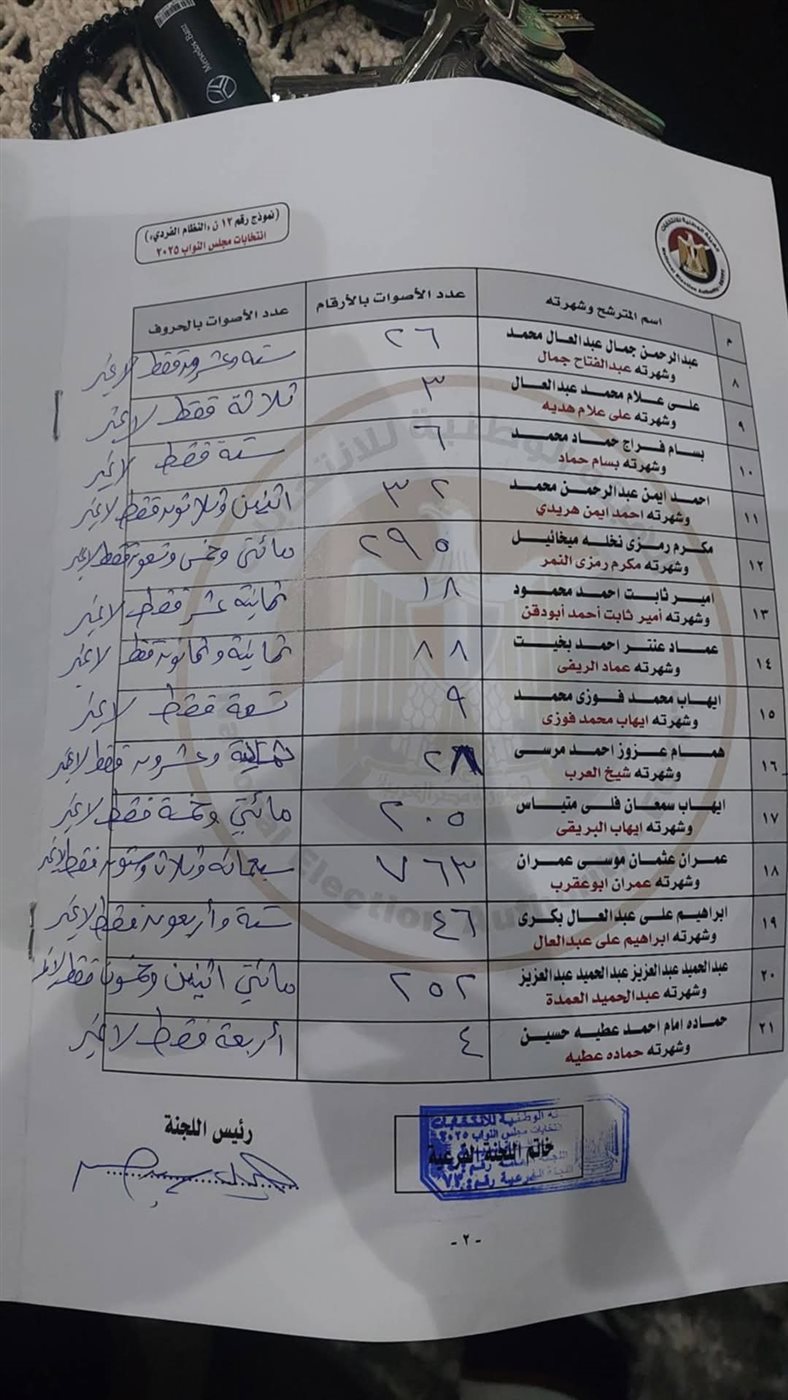 Mercedes-Benz
(نموذج رقم ١٢ ن «النظام الفردي»)
انتخابات مجلس النواب ٢٠٢٥
م
اسم المترشح وشهرته
عدد الأصوات بالأرقام
عدد الأصوات بالحروف
٨
عبدالرحمن جمال عبدالعال محمد
وشهرته عبدالفتاح جمال
٢٦
ستة وعشرون فقط لا غير
٩
على علام محمد عبدالعال
وشهرته على علام هديه
٣
ثلاثة فقط لا غير
١٠
بسام فراج حماد محمد
وشهرته بسام حماد
٦
ستة فقط لا غير
١١
احمد ايمن عبدالرحمن محمد
وشهرته احمد ايمن هريدي
٣٢
اثنين وثلاثون فقط لا غير
١٢
مكرم رمزى نخله ميخائيل
وشهرته مكرم رمزى النمر
٢٩٥
مائتي وخمس وتسعون فقط لا غير
١٣
امير ثابت احمد محمود
وشهرته أمير ثابت أحمد أبودقن
١٨
ثمانية عشر فقط لا غير
١٤
عماد عنتر احمد بخيت
وشهرته عماد الريفى
٨٨
ثمانية وثمانون فقط لا غير
١٥
ايهاب محمد فوزى محمد
وشهرته ايهاب محمد فوزى
٩
تسعة فقط لا غير
١٦
همام عزوز احمد مرسى
وشهرته شيخ العرب
٢٨
ثمانية وعشرون فقط لا غير
١٧
ايهاب سمعان فلى متياس
وشهرته ايهاب البريقى
٢٠٥
مائتي وخمسة فقط لا غير
١٨
عمران عثمان موسى عمران
وشهرته عمران ابوعقرب
٧٦٣
سبعمائة وثلاث وستون فقط لا غير
١٩
ابراهيم على عبدالعال بكرى
وشهرته ابراهيم على عبدالعال
٤٦
ستة وأربعون فقط لا غير
٢٠
عبدالحميد عبدالعزيز عبدالحميد عبدالعزيز
وشهرته عبدالحميد العمدة
٢٥٢
مائتي اثنين وخمسون فقط لا غير
٢١
حماده امام احمد عطيه حسين
وشهرته حماده عطيه
٤
أربعة فقط لا غير
رئيس اللجنة
خاتم اللجنة الفرعية
انتخابات مجلس النواب ٢٠٢٥
- ٢ -